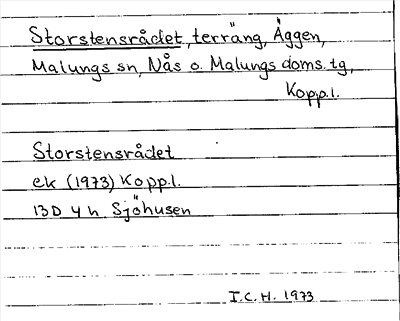 Storstensrådet, terräng, Äggen,
Malungs sn, Nås o. Malungs doms. tg,
Kopp.l.
Storstensrådet
ek (1973) Kopp.l.
13D 4 h Sjöhusen
I.C.H. 1973